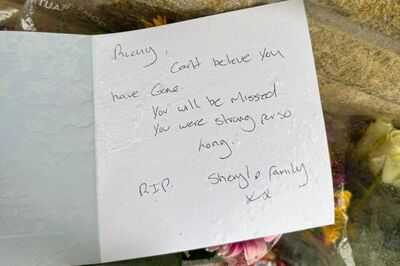 Can't beleve you
have Gone.
You will be missed
You were strong for so
Long.
R.I.P.
Sheryl & family
xx